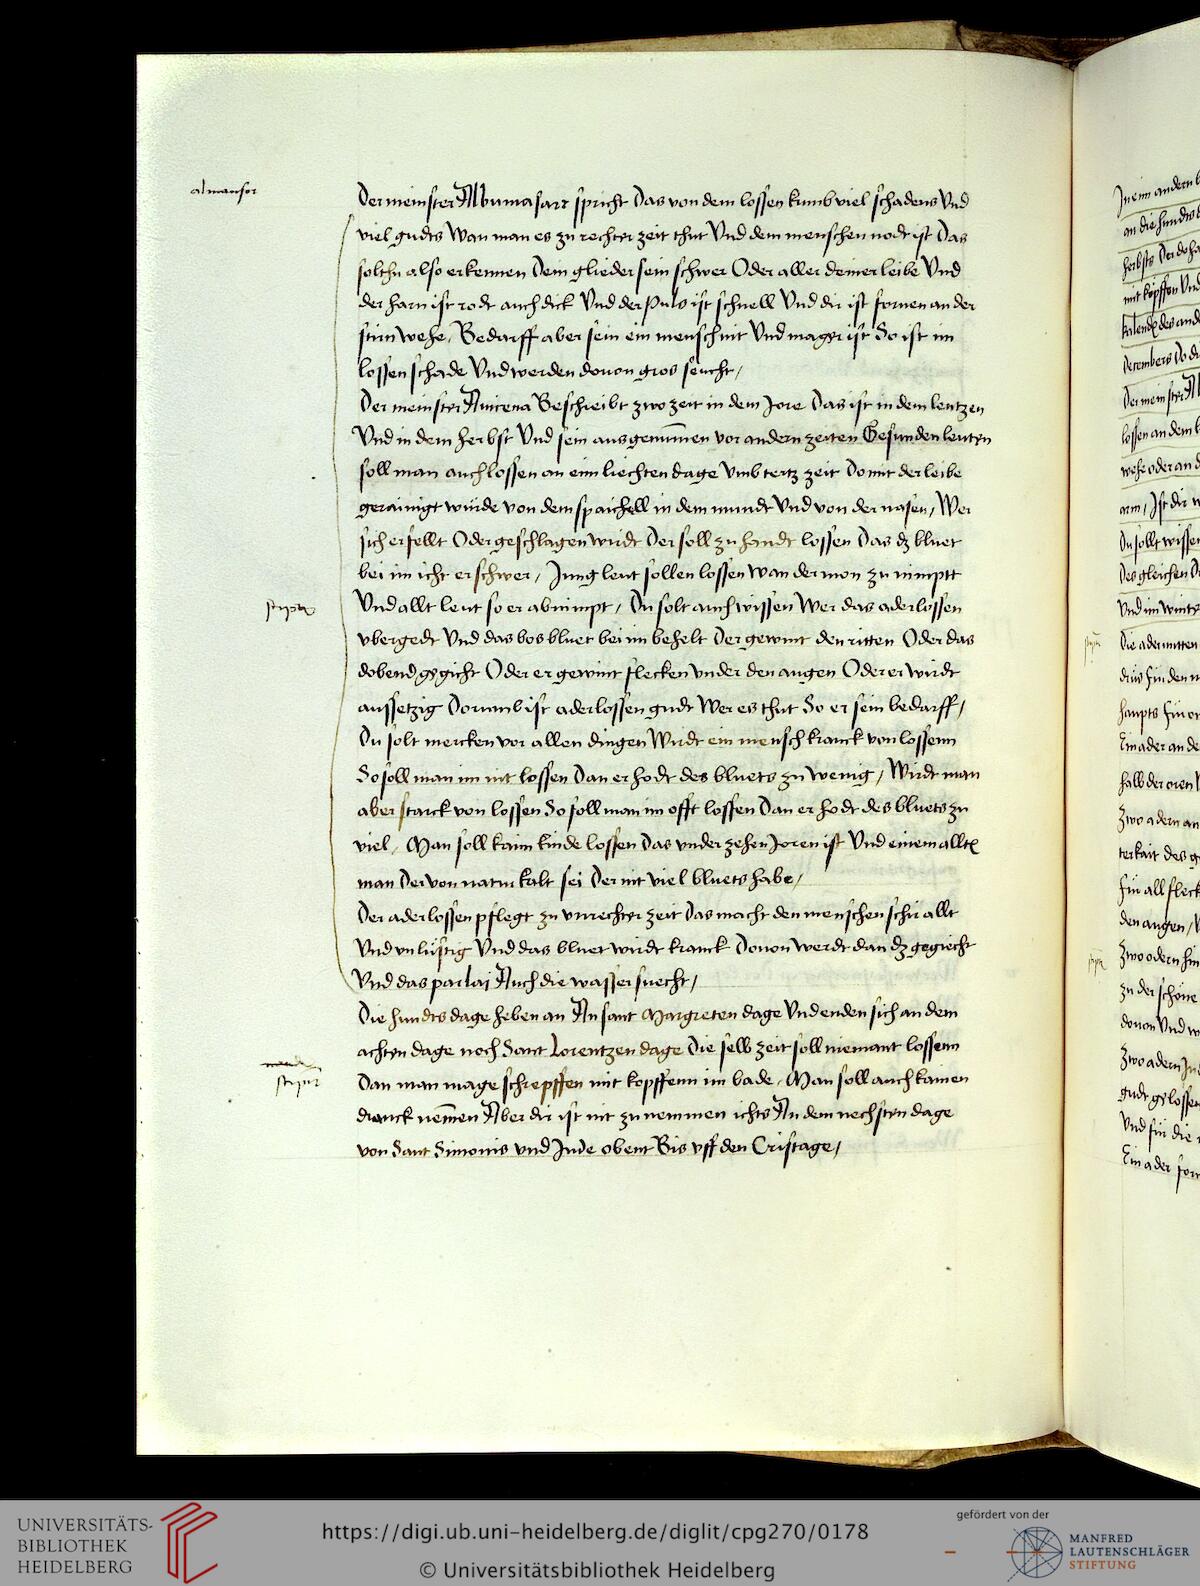 almansor
Der meinster Albumasarr spricht Das von dem lossen kumb viel schadens Vnd
viel gudts Wan man es zu rechter zeit thut Vnd dem menschen nodt ist Das
solthu also erkennen Dein glieder sein schwer Oder aller deiner leibe Vnd
der harn ist rodt auch dick Vnd der Puls ist schnell Vnd dir ist fornen an der
stirn wehe, Bedarff aber sein ein mensch nit Vnd mager ist So ist im
lossen schade Vnd werden douon gros seucht,
Der meinster Auicena Beschreibt zwo zeit in dem Jore Das ist in dem lentzen
Vnd in dem herbst Vnd sein ausgenummen vor andern zeiten Gesunden leuten
soll man auch lossen an eim liechten dage Vmb tertz zeit Domit der leibe
gerainigt wurde von dem spaichell in dem mundt Vnd von der nasen, Wer
sich erfellt Oder geschlagen wirdt Der soll zu handt lossen Das dz bluet
bei im icht erschwer, Jung leut sollen lossen wan der mon zu nimptt
Vnd allt leut so er abnimpt, Du solt auch wissen Wer das aderlossen
vbergedt Vnd das bos bluet bei im behelt Der gewint den ritten Oder das
dobend gegicht Oder er gewint flecken vnder den augen Oder er wirdt
aussetzig Dorumb ist aderlossen gudt Wer es thut So er sein bedarff,
Du solt mercken vor allen dingen Wirdt ein mensch kranck von lossenn
So soll man im nit lossen Dan er hodt des bluets zu wenig, Wirdt man
aber starck von lossen So soll man im offt lossen Dan er hodt des bluets zu
viel, Man soll kaim kinde lossen Das vnder zehen Joren ist Vnd einem allten
man Der von natur kalt sei Der nit viel bluets habe,
Der aderlossen pflegt zu vnrechter zeit Das macht den menschen schir allt
Vnd vnlustig Vnd das bluet wirdt kranck Douon werdt dan dz gegiecht
Vnd das parlai Auch die wassersuecht,
Die hundts dage heben an An sant Margreten dage Vnd enden sich an dem
achten dage noch Sanct Lorentzen dage Die selb zeit soll niemant lossenn
Dan man mage schrepffen mit kopffenn im bade, Man soll auch kainen
dranck nemen Aber dir ist nit zu nemmen ichts An dem nechsten dage
von Sant Simonis vnd Jude obent Bis vff den Cristage,
UNIVERSITÄTS-
BIBLIOTHEK
HEIDELBERG
https://digi.ub.uni-heidelberg.de/diglit/cpg270/0178
© Universitätsbibliothek Heidelberg
gefördert von der
MANFRED
LAUTENSCHLÄGER
STIFTUNG